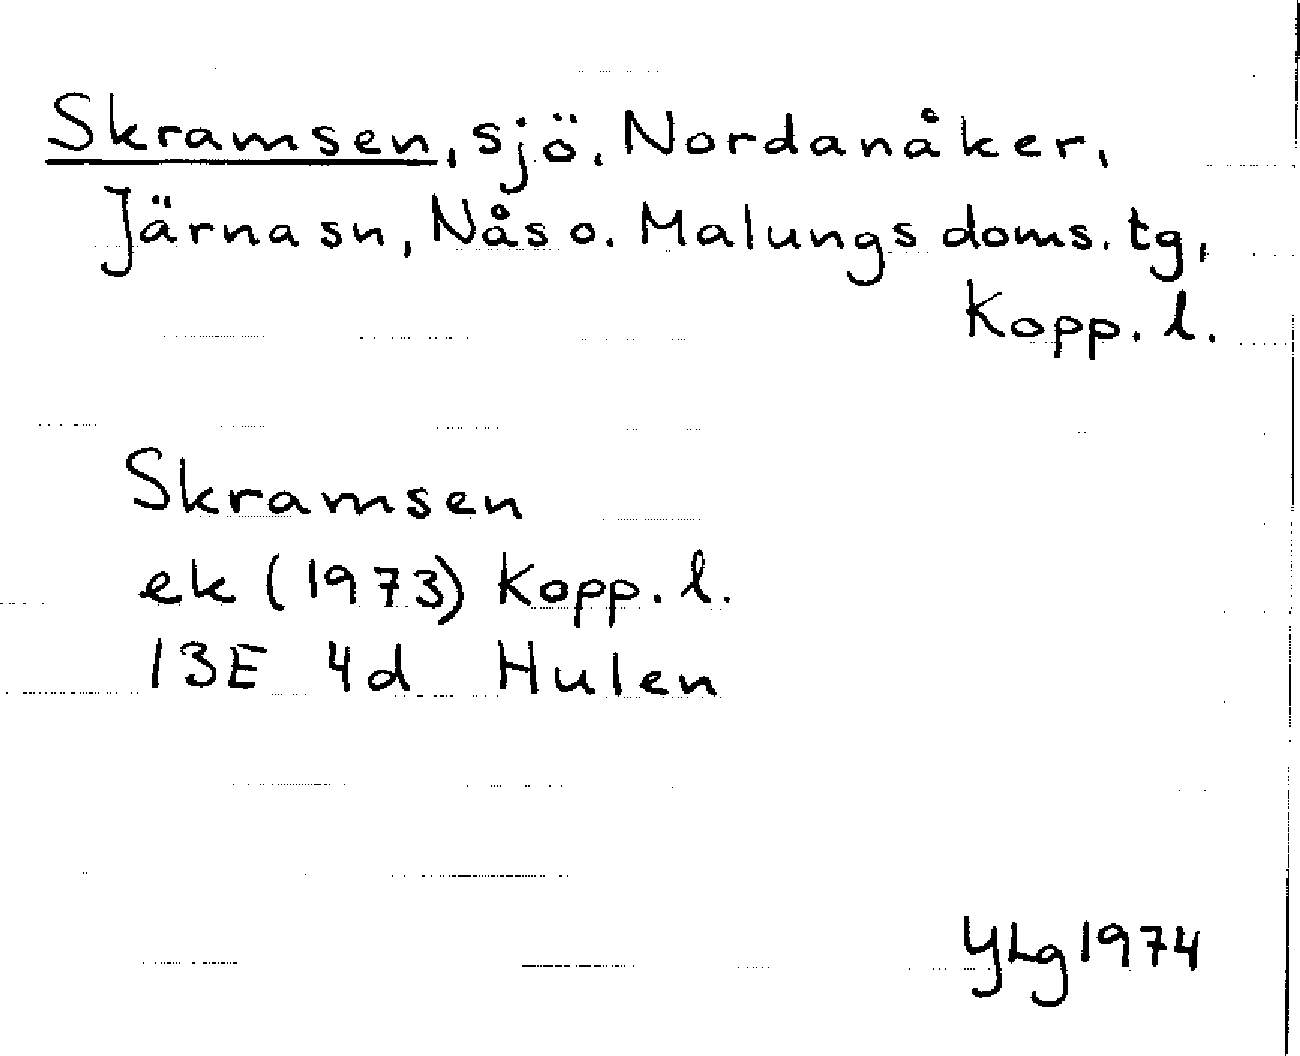 Skramsen, sjö. Nordanåker,
Järnasn, Nås o. Malungs doms. tg,
Kopp. l.
Skramsen
ek (1973) Kopp. l.
13E 4d Hulen
YLg 1974